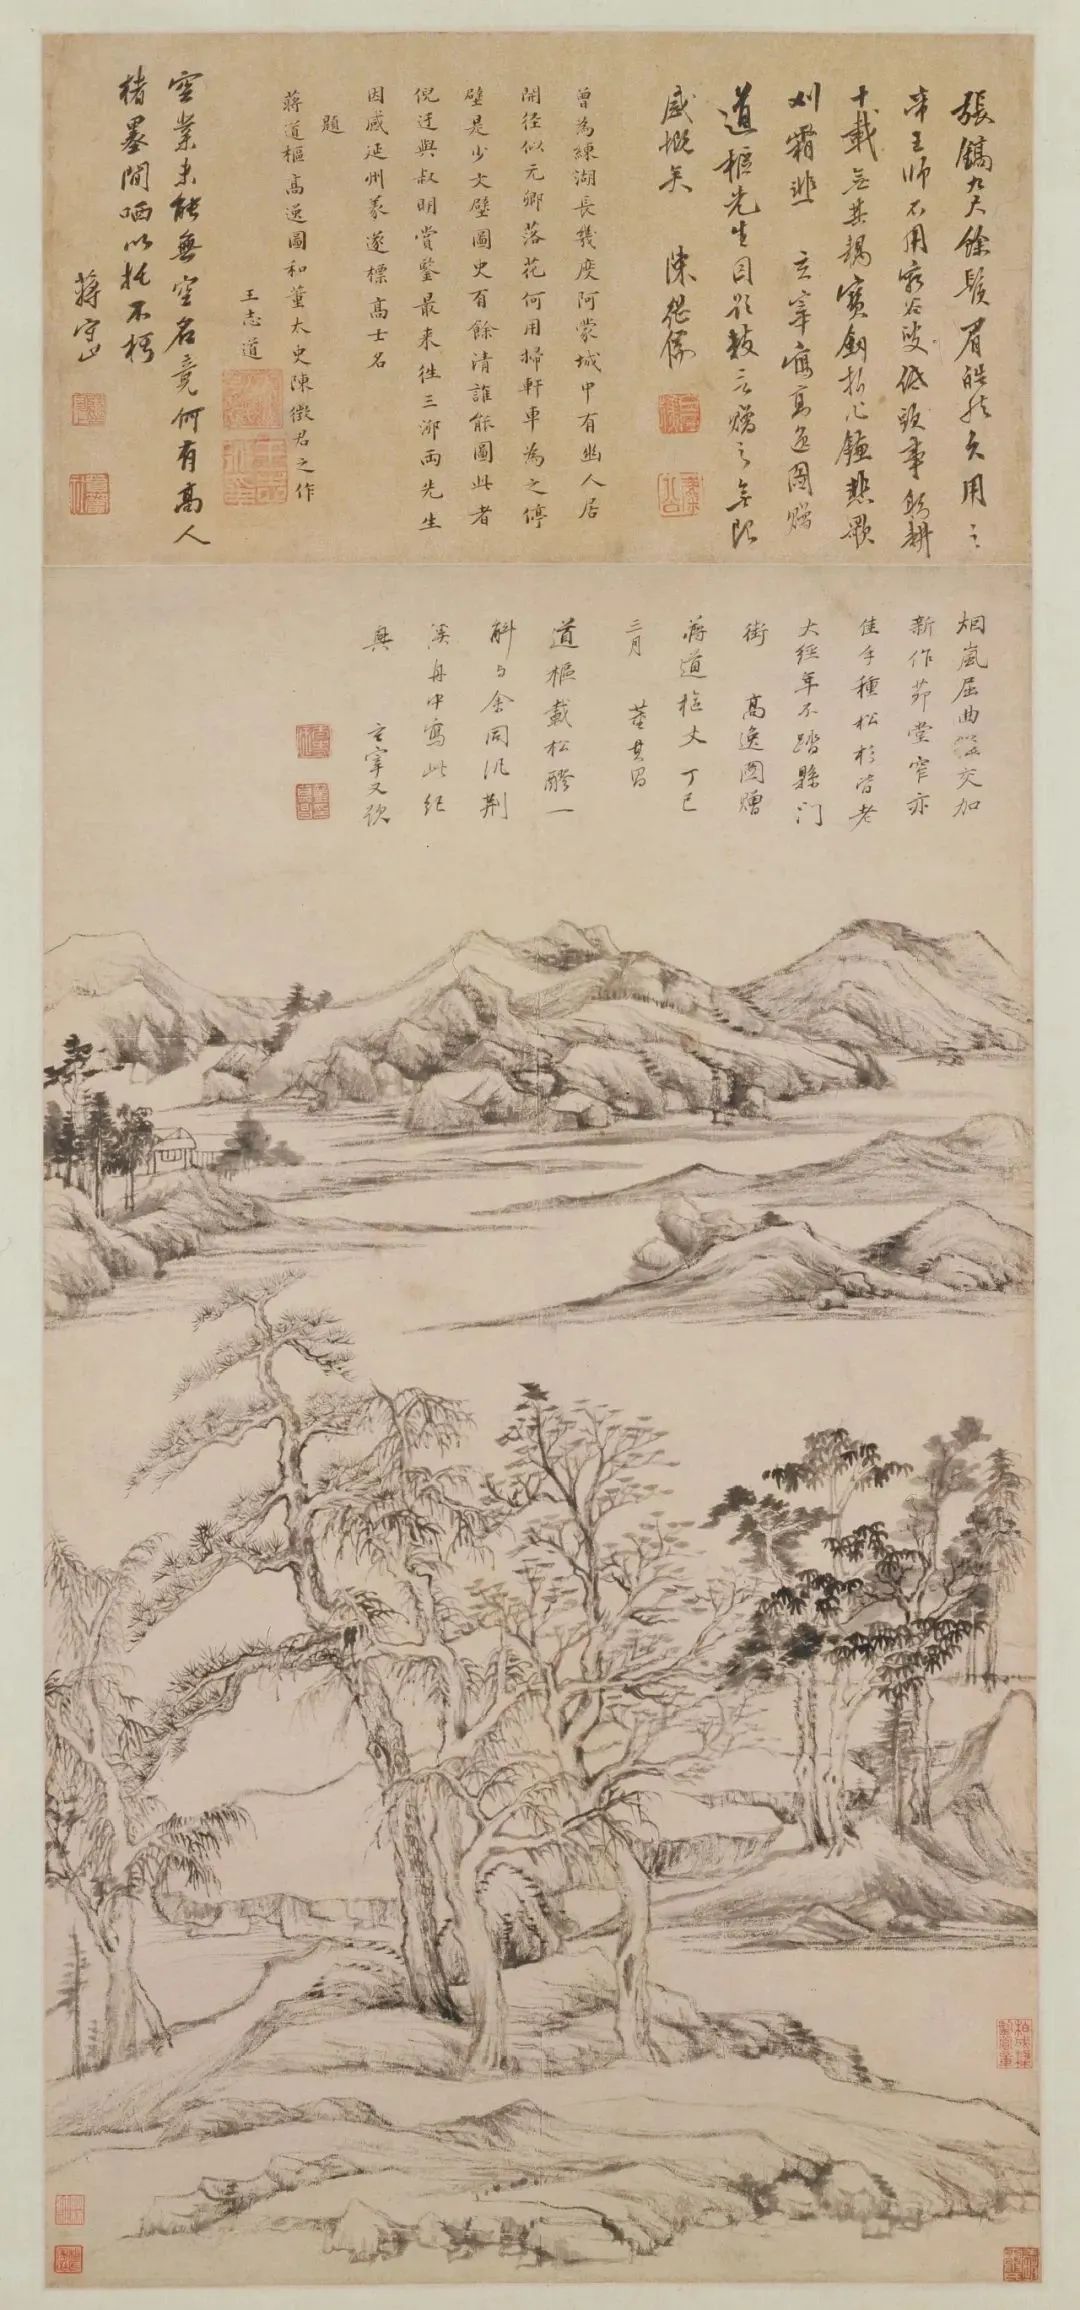 張鎬九尺餘鬚眉皓然久用之
帝王師不用窮谷叟低頭事鋤耕
十載無其耦寶劍折作鐮悲歌
刈霜韭 玄宰寫高逸圖贈
道樞先生因題數言贈之無既
感慨矣 陳繼儒
曾為練湖長幾度阿蒙城中有幽人居
開徑似元卿落花何用掃軒車為之停
壁是少文壁圖史有餘清誰能圖此者
倪迂與叔明賞鑒最来往三泖兩先生
因感延州義遂標高士名
題
蔣道樞高逸圖和董太史陳徵君之作
王志道
空業未能無空名竟何有高人
楮墨間哂以托不朽
蔣守止
烟嵐屈曲交加
新作茆堂窄亦
佳手種松杉皆老
大經年不踏縣门
街 高逸圖贈
蔣道樞丈 丁巳
三月 董其昌
道樞載松醪一
斛与余同汎荆
溪舟中寫此紀
興 玄宰又題